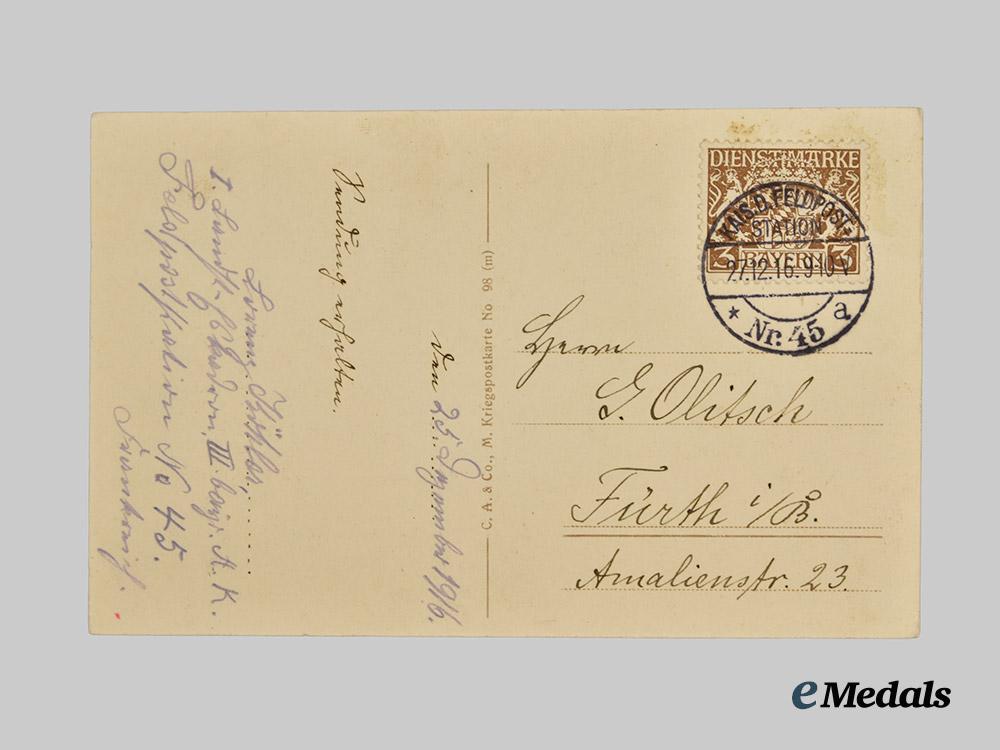 Sendung erhalten.
den 25. Dezember 1916.
I. Landst. Eskadron III. bayr. A. K.
Feldpoststation No 45.
Frankreich.
C. A. & Co., M. Kriegspostkarte No 98 (m)
DIENSTMARKE
3 BAYERN 3
KAIS. D. FELDPOST-
STATION
27.12.16. 9-10 V
* Nr. 45 a
Herrn
G. Olitsch
Fürth i/B.
Amalienstr. 23.
eMedals